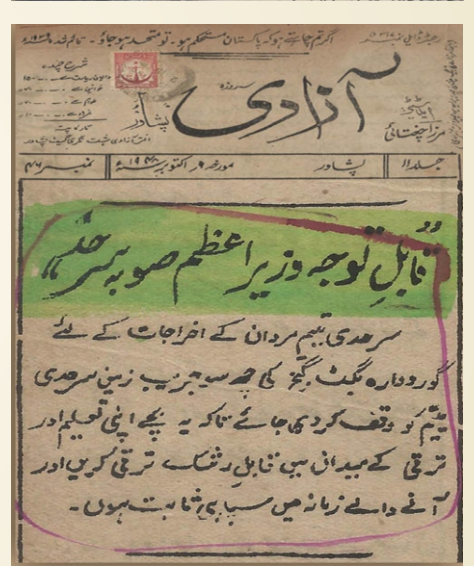 اگر تم چاہتے ہو کہ پاکستان مستحکم ہو۔ تو متحد ہو جاؤ۔
رجسٹرڈ ایل نمبر
شرح چندہ
سہ روزہ
آزادی
پشاور
ایڈیٹر
مرزا چغتائی
جلد ۱۱
پشاور
مورخہ ۹ر اکتوبر ۱۹۴۸ء
نمبر ۴۶
"قابلِ توجہ وزیر اعظم صوبہ سرحد"
سرحدی یتیم مردان کے اخراجات کے لئے
گوردوارہ گنج کی چھ سو جریب زمین سرحدی
یتیم کو وقف کر دی جائے تاکہ یہ بچے اپنی تعلیم اور
ترقی کے میدان میں قابلِ رشک ترقی کریں اور
آنے والے زمانہ میں سپاہی ثابت ہوں۔